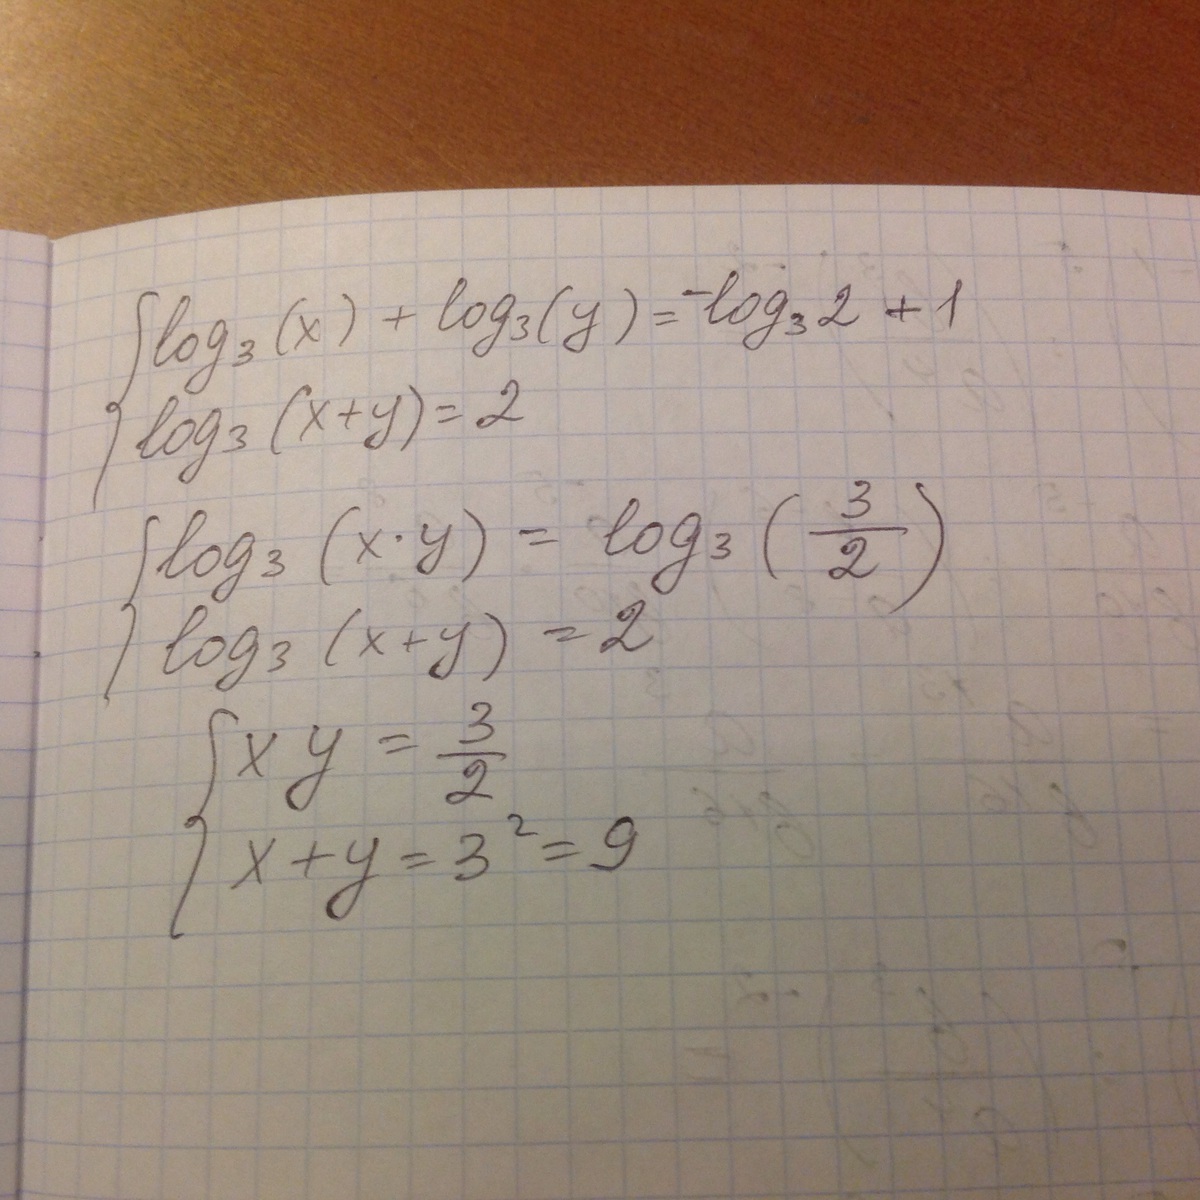 log₃(x) + log₃(y) = -log₃2 + 1
log₃(x+y) = 2
log₃(x·y) = log₃(3/2)
log₃(x+y) = 2
xy = 3/2
x+y = 3² = 9